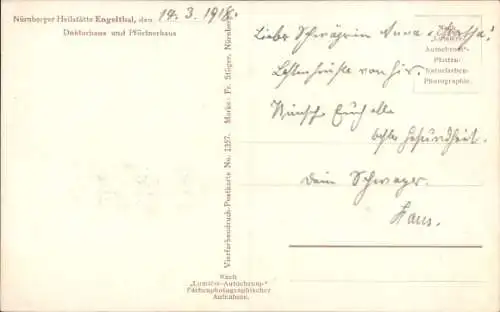 Nürnberger Heilstätte Engelthal, den 14. 3. 1918.
Doktorhaus und Pförtnerhaus
Liebe Schwägerin Anna u. Martha!
von hier.
Wünsche Euch alle
beste Gesundheit.
Dein Schwager.
Hans.
Nach
„Lumière-
Autochrom“-
Photos-
Naturfarben-
Photographie.
Vierfarbendruck-Postkarte No. 2357. Marke: Fr. Stöger, Nürnberg
Nach
„Lumière-Autochrom“
Farbenphotographischer
Aufnahme.